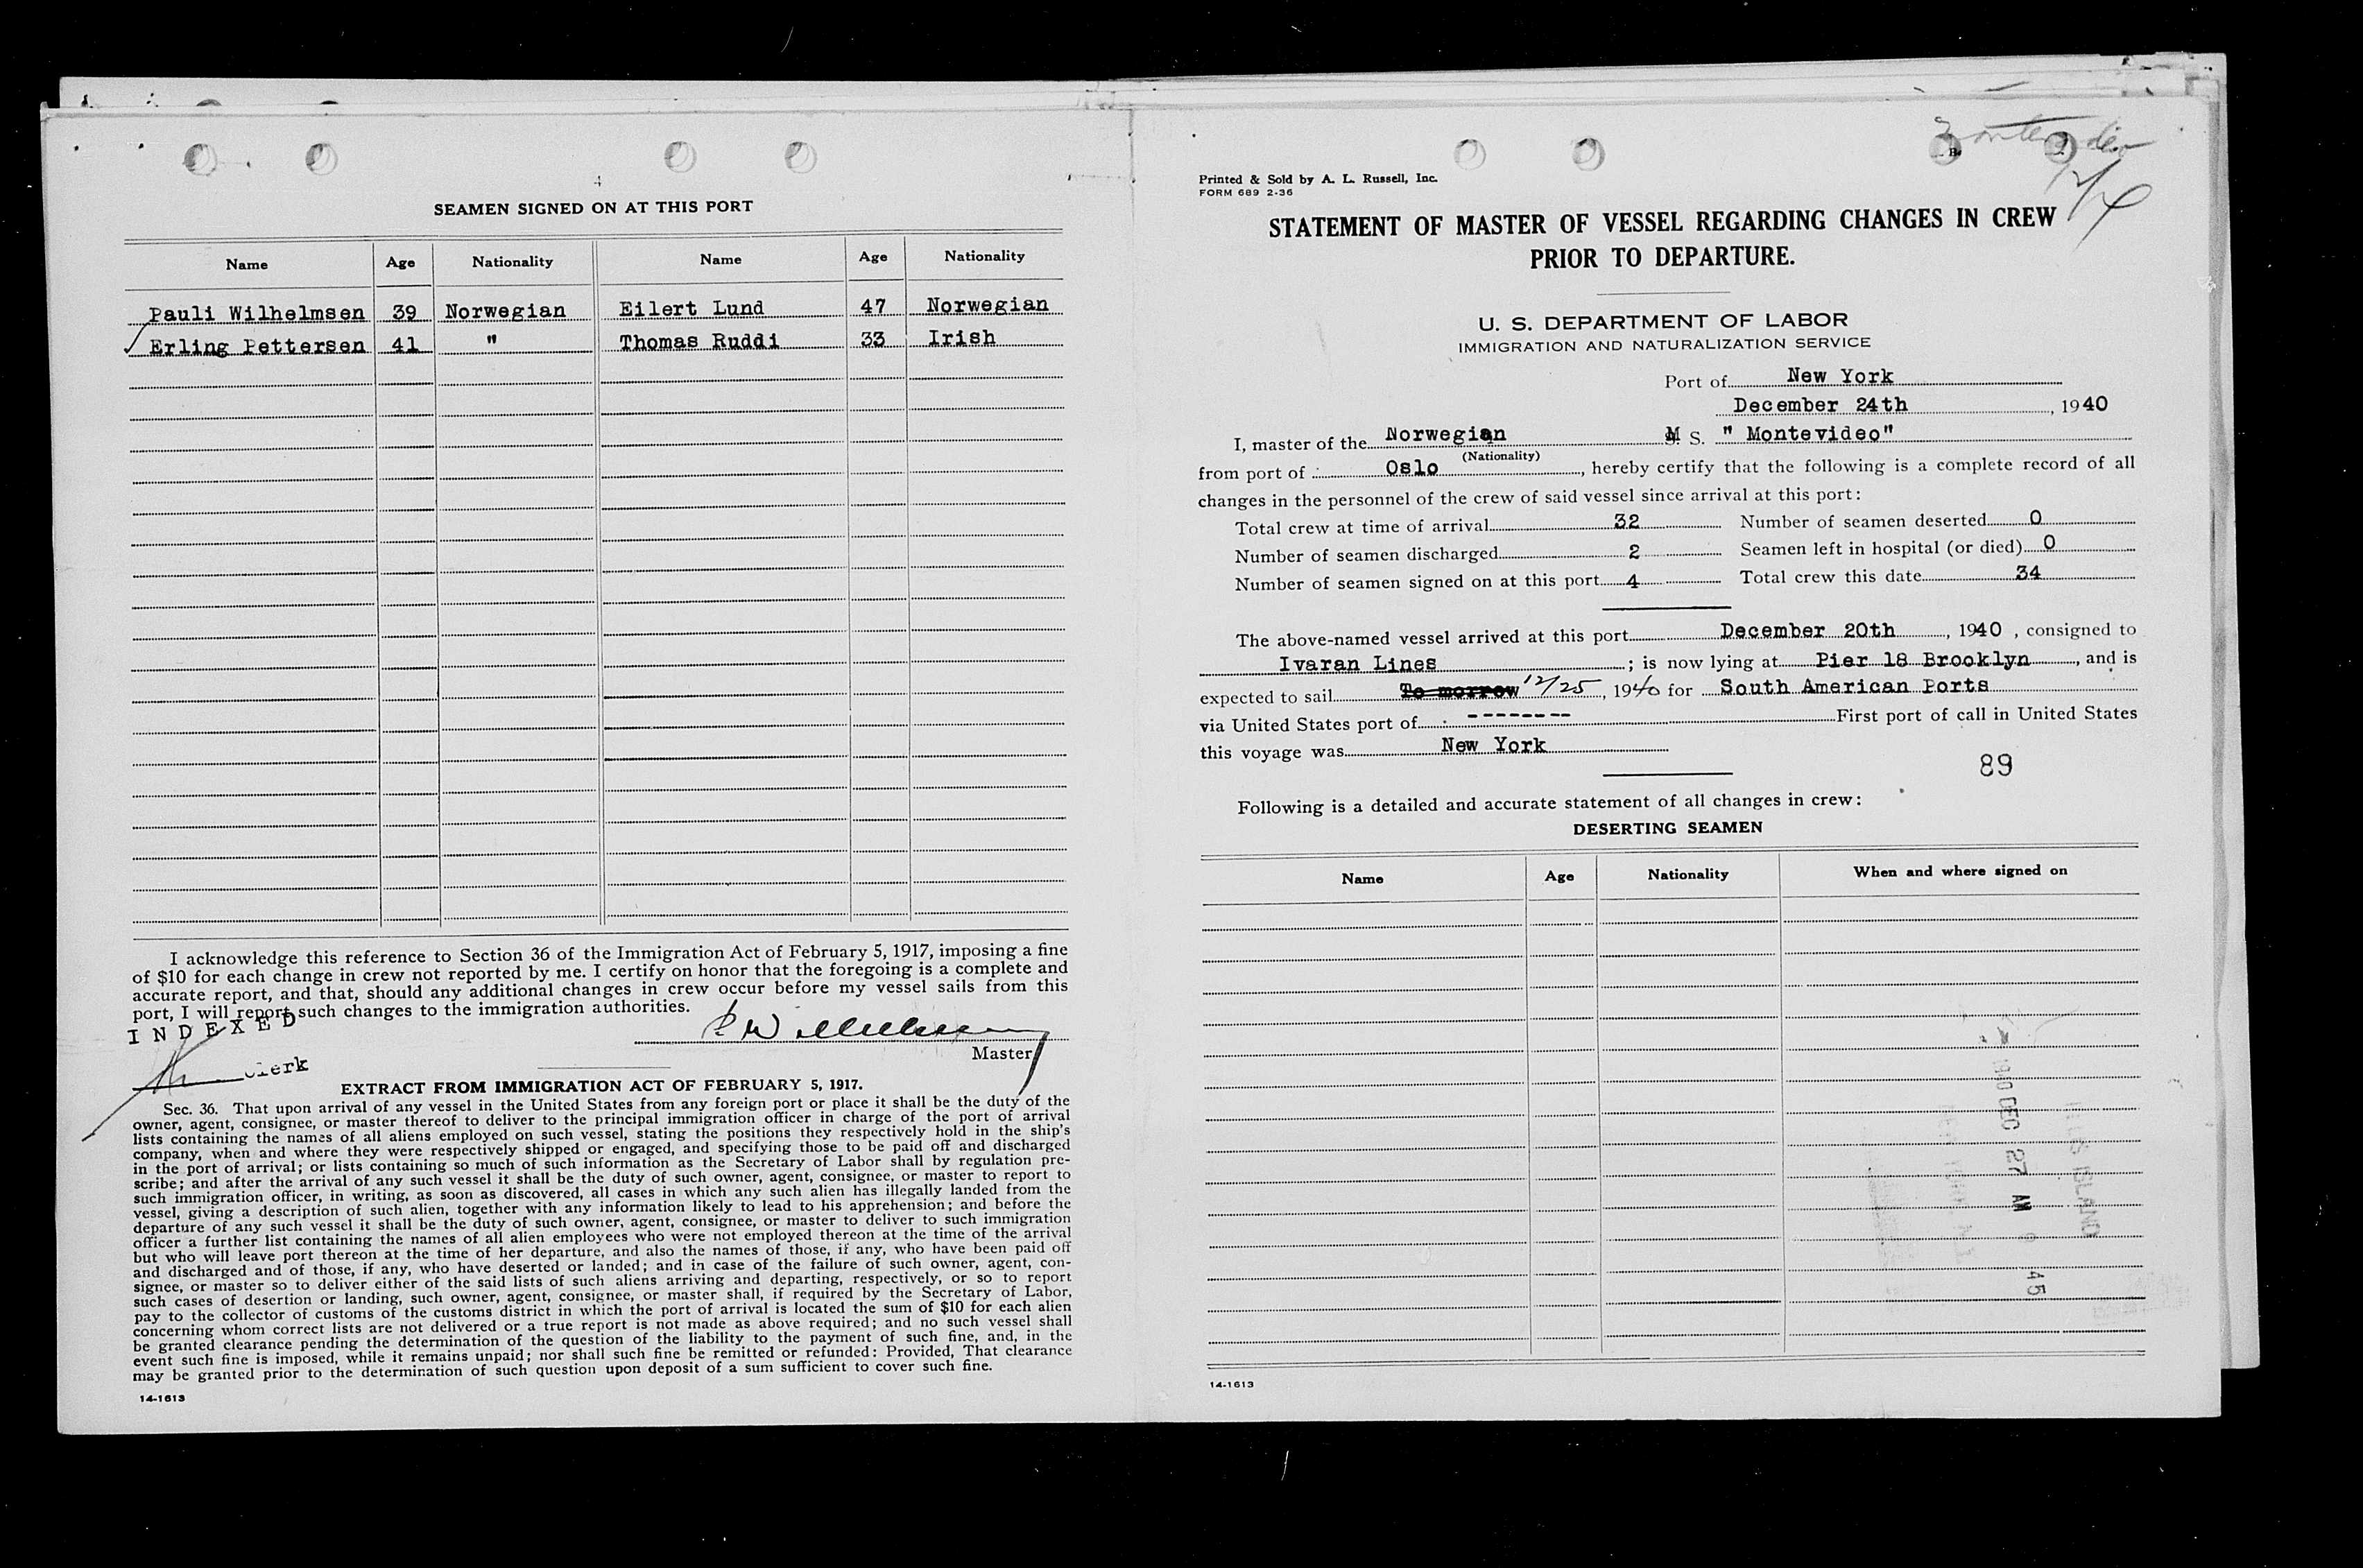 4
SEAMEN SIGNED ON AT THIS PORT
Name Age Nationality Name Age Nationality
Pauli Wilhelmsen 39 Norwegian Eilert Lund 47 Norwegian
Erling Pettersen 41 " Thomas Ruddi 33 Irish
I acknowledge this reference to Section 36 of the Immigration Act of February 5, 1917, imposing a fine
of $10 for each change in crew not reported by me. I certify on honor that the foregoing is a complete and
accurate report, and that, should any additional changes in crew occur before my vessel sails from this
port, I will report such changes to the immigration authorities.
INDEXED
Master
Clerk
EXTRACT FROM IMMIGRATION ACT OF FEBRUARY 5, 1917.
Sec. 36. That upon arrival of any vessel in the United States from any foreign port or place it shall be the duty of the
owner, agent, consignee, or master thereof to deliver to the principal immigration officer in charge of the port of arrival
lists containing the names of all aliens employed on such vessel, stating the positions they respectively hold in the ship's
company, when and where they were respectively shipped or engaged, and specifying those to be paid off and discharged
in the port of arrival; or lists containing so much of such information as the Secretary of Labor shall by regulation pre-
scribe; and after the arrival of any such vessel it shall be the duty of such owner, agent, consignee, or master to report to
such immigration officer, in writing, as soon as discovered, all cases in which any such alien has illegally landed from the
vessel, giving a description of such alien, together with any information likely to lead to his apprehension; and before the
departure of any such vessel it shall be the duty of such owner, agent, consignee, or master to deliver to such immigration
officer a further list containing the names of all alien employees who were not employed thereon at the time of the arrival
but who will leave port thereon at the time of her departure, and also the names of those, if any, who have been paid off
and discharged and of those, if any, who have deserted or landed; and in case of the failure of such owner, agent, con-
signee, or master so to deliver either of the said lists of such aliens arriving and departing, respectively, or so to report
such cases of desertion or landing, such owner, agent, consignee, or master shall, if required by the Secretary of Labor,
pay to the collector of customs of the customs district in which the port of arrival is located the sum of $10 for each alien
concerning whom correct lists are not delivered or a true report is not made as above required; and no such vessel shall
be granted clearance pending the determination of the question of the liability to the payment of such fine, and, in the
event such fine is imposed, while it remains unpaid; nor shall such fine be remitted or refunded: Provided, That clearance
may be granted prior to the determination of such question upon deposit of a sum sufficient to cover such fine.
14-1613
Printed & Sold by A. L. Russell, Inc.
FORM 689 2-36
STATEMENT OF MASTER OF VESSEL REGARDING CHANGES IN CREW
PRIOR TO DEPARTURE.
U. S. DEPARTMENT OF LABOR
IMMIGRATION AND NATURALIZATION SERVICE
Port of New York
December 24th, 1940
I, master of the Norwegian M. S. " Montevideo"
(Nationality)
from port of Oslo, hereby certify that the following is a complete record of all
changes in the personnel of the crew of said vessel since arrival at this port:
Total crew at time of arrival 32 Number of seamen deserted 0
Number of seamen discharged 2 Seamen left in hospital (or died) 0
Number of seamen signed on at this port 4 Total crew this date 34
The above-named vessel arrived at this port December 20th, 1940, consigned to
Ivaran Lines; is now lying at Pier 18 Brooklyn, and is
expected to sail To morrow 12/25, 1940 for South American Ports
via United States port of -------- First port of call in United States
this voyage was New York
89
Following is a detailed and accurate statement of all changes in crew:
DESERTING SEAMEN
Name Age Nationality When and where signed on
1940 DEC 27 AM 45
ISLAND
14-1613